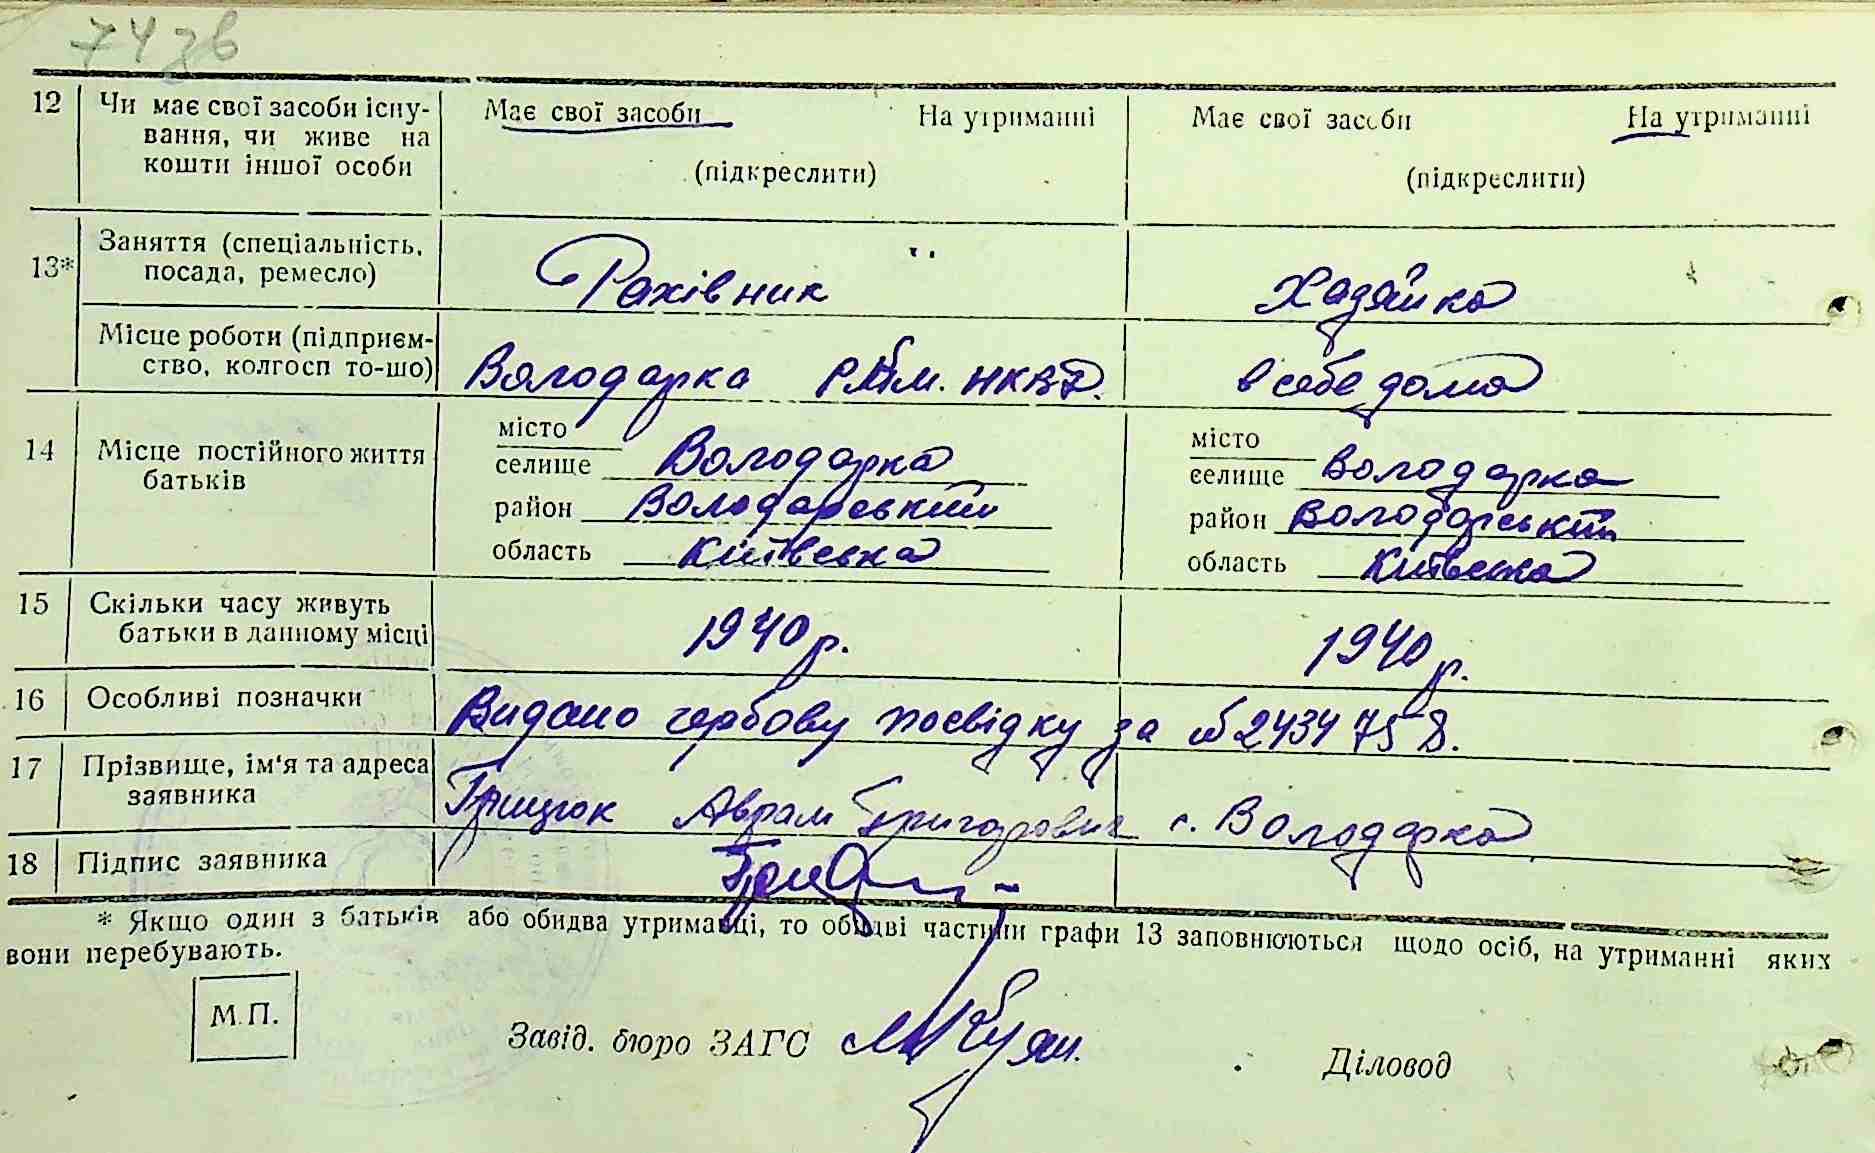 74 зв
12 Чи має свої засоби існу- Має свої засоби На утриманні Має свої засоби На утриманні
вання, чи живе на
кошти іншої особи (підкреслити) (підкреслити)
13* Заняття (спеціальність, посада, ремесло) Рахівник Хазяйка
Місце роботи (підприєм-
ство, колгосп то-що) Володарка НКВД. в себе дома
14 Місце постійного життя батьків
місто місто
селище Володарка селище Володарка
район Володарський район Володарський
область Київська область Київська
15 Скільки часу живуть
батьки в данному місці 1940 р. 1940 р.
16 Особливі позначки Видано гербову посвідку за № 2434758.
17 Прізвище, ім'я та адреса
заявника Грицюк Аврам Григорович с. Володарка
18 Підпис заявника
* Якщо один з батьків або обидва утриманці, то обидві частини графи 13 заповнюються щодо осіб, на утриманні яких
вони перебувають.
М.П.
Завід. бюро ЗАГС Діловод